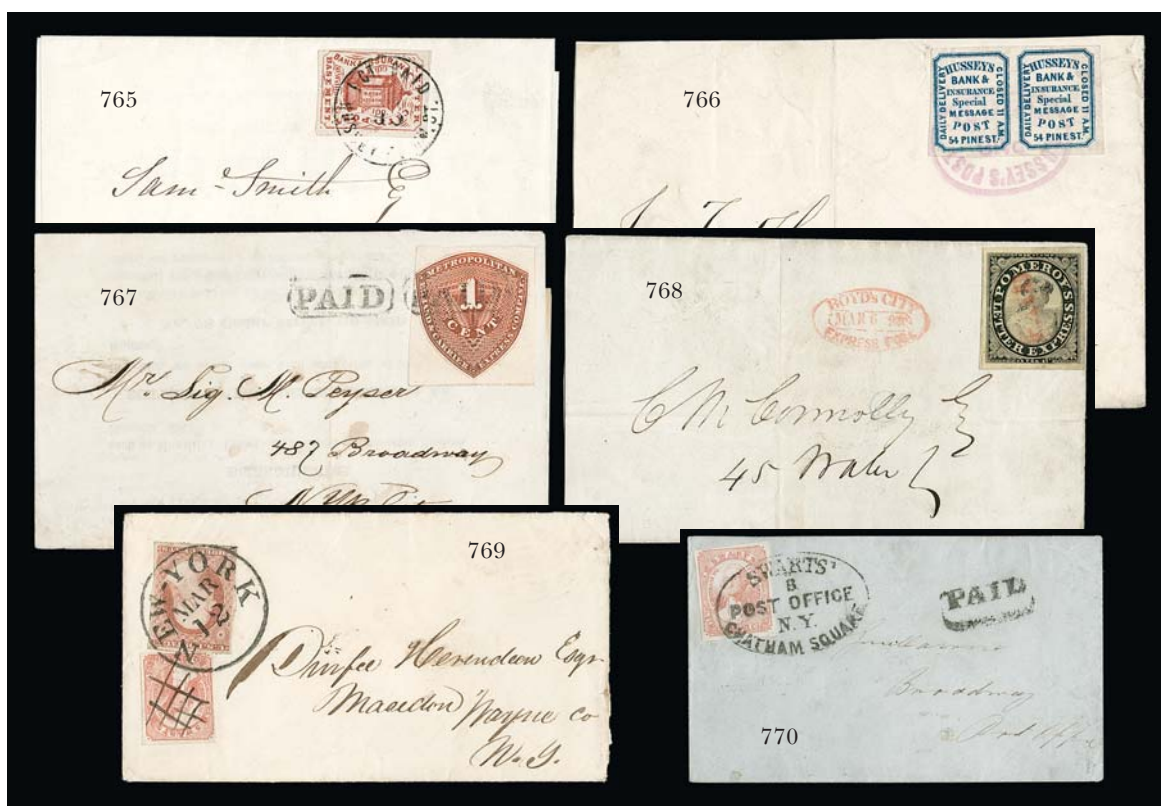 765
1 CT. PAID
BASEMENT
Sam Smith
766
HUSSEY'S
BANK &
INSURANCE
Special
MESSAGE
POST
54 PINE ST.
DAILY DELIVERY
CLOSED 11 AM.
HUSSEY'S
BANK &
INSURANCE
Special
MESSAGE
POST
54 PINE ST.
DAILY DELIVERY
CLOSED 11 A.M.
HUSSEY'S POST
767
PAID
METROPOLITAN
1
CENT
ERRAND & CARRIER EXPRESS COMPANY
Mr. Sig. M. Peyser
487 Broadway
768
BOYD'S CITY
MAR 6
EXPRESS POST
POMEROY'S
LETTER EXPRESS
C M Connolly Esq
45 Water
769
NEW-YORK
MAR
12
Durfee Herendeen Esqr
Macedon Wayne Co
N.Y.
SWARTS'
B
POST OFFICE
N.Y.
CHATHAM SQUARE
PAID
Broadway
770